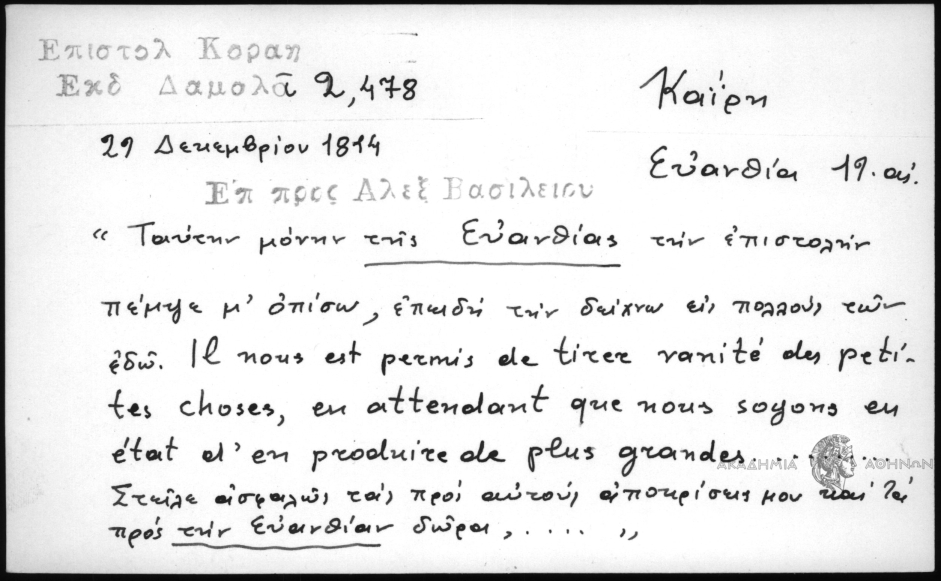 Επιστολ Κοραη
Εκδ Δαμαλᾶ 2,478
Καΐρη
29 Δεκεμβρίου 1814
Εὐανθία 19. αἰ.
Επ προς Αλεξ Βασιλειου
“ Ταύτην μόνην τῆς Εὐανθίας τὴν ἐπιστολὴν
πέμψε μ' ὀπίσω, ἐπειδὴ τὴν δείχνω εἰς πολλοὺς τῶν
ἐδῶ. Il nous est permis de tirer vanité des peti-
tes choses, en attendant que nous soyons en
état d'en produire de plus grandes..........
ΑΚΑΔΗΜΙΑ ΑΘΗΝΩΝ
Στεῖλε ἀσφαλῶς τὰς πρὸς αὐτοὺς ἀποκρίσεις μου καὶ τὰ
πρὸς τὴν Εὐανθίαν δῶρα, ..... „